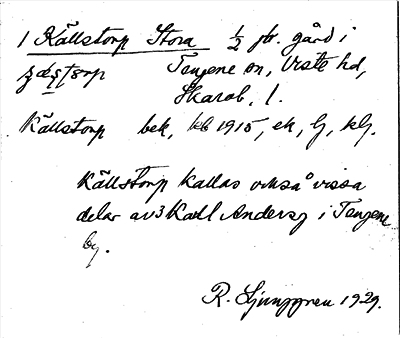 1 Källstorp Stora ½ jb. gård i
Tengene sn, Viste hd,
Skarab. l.
Källstorp bek, 1915, ek, lj, klg.
Källstorp kallas också vissa
delar av 3 Kall Andersg i Tengene
by.
R. Ljunggren 1929.